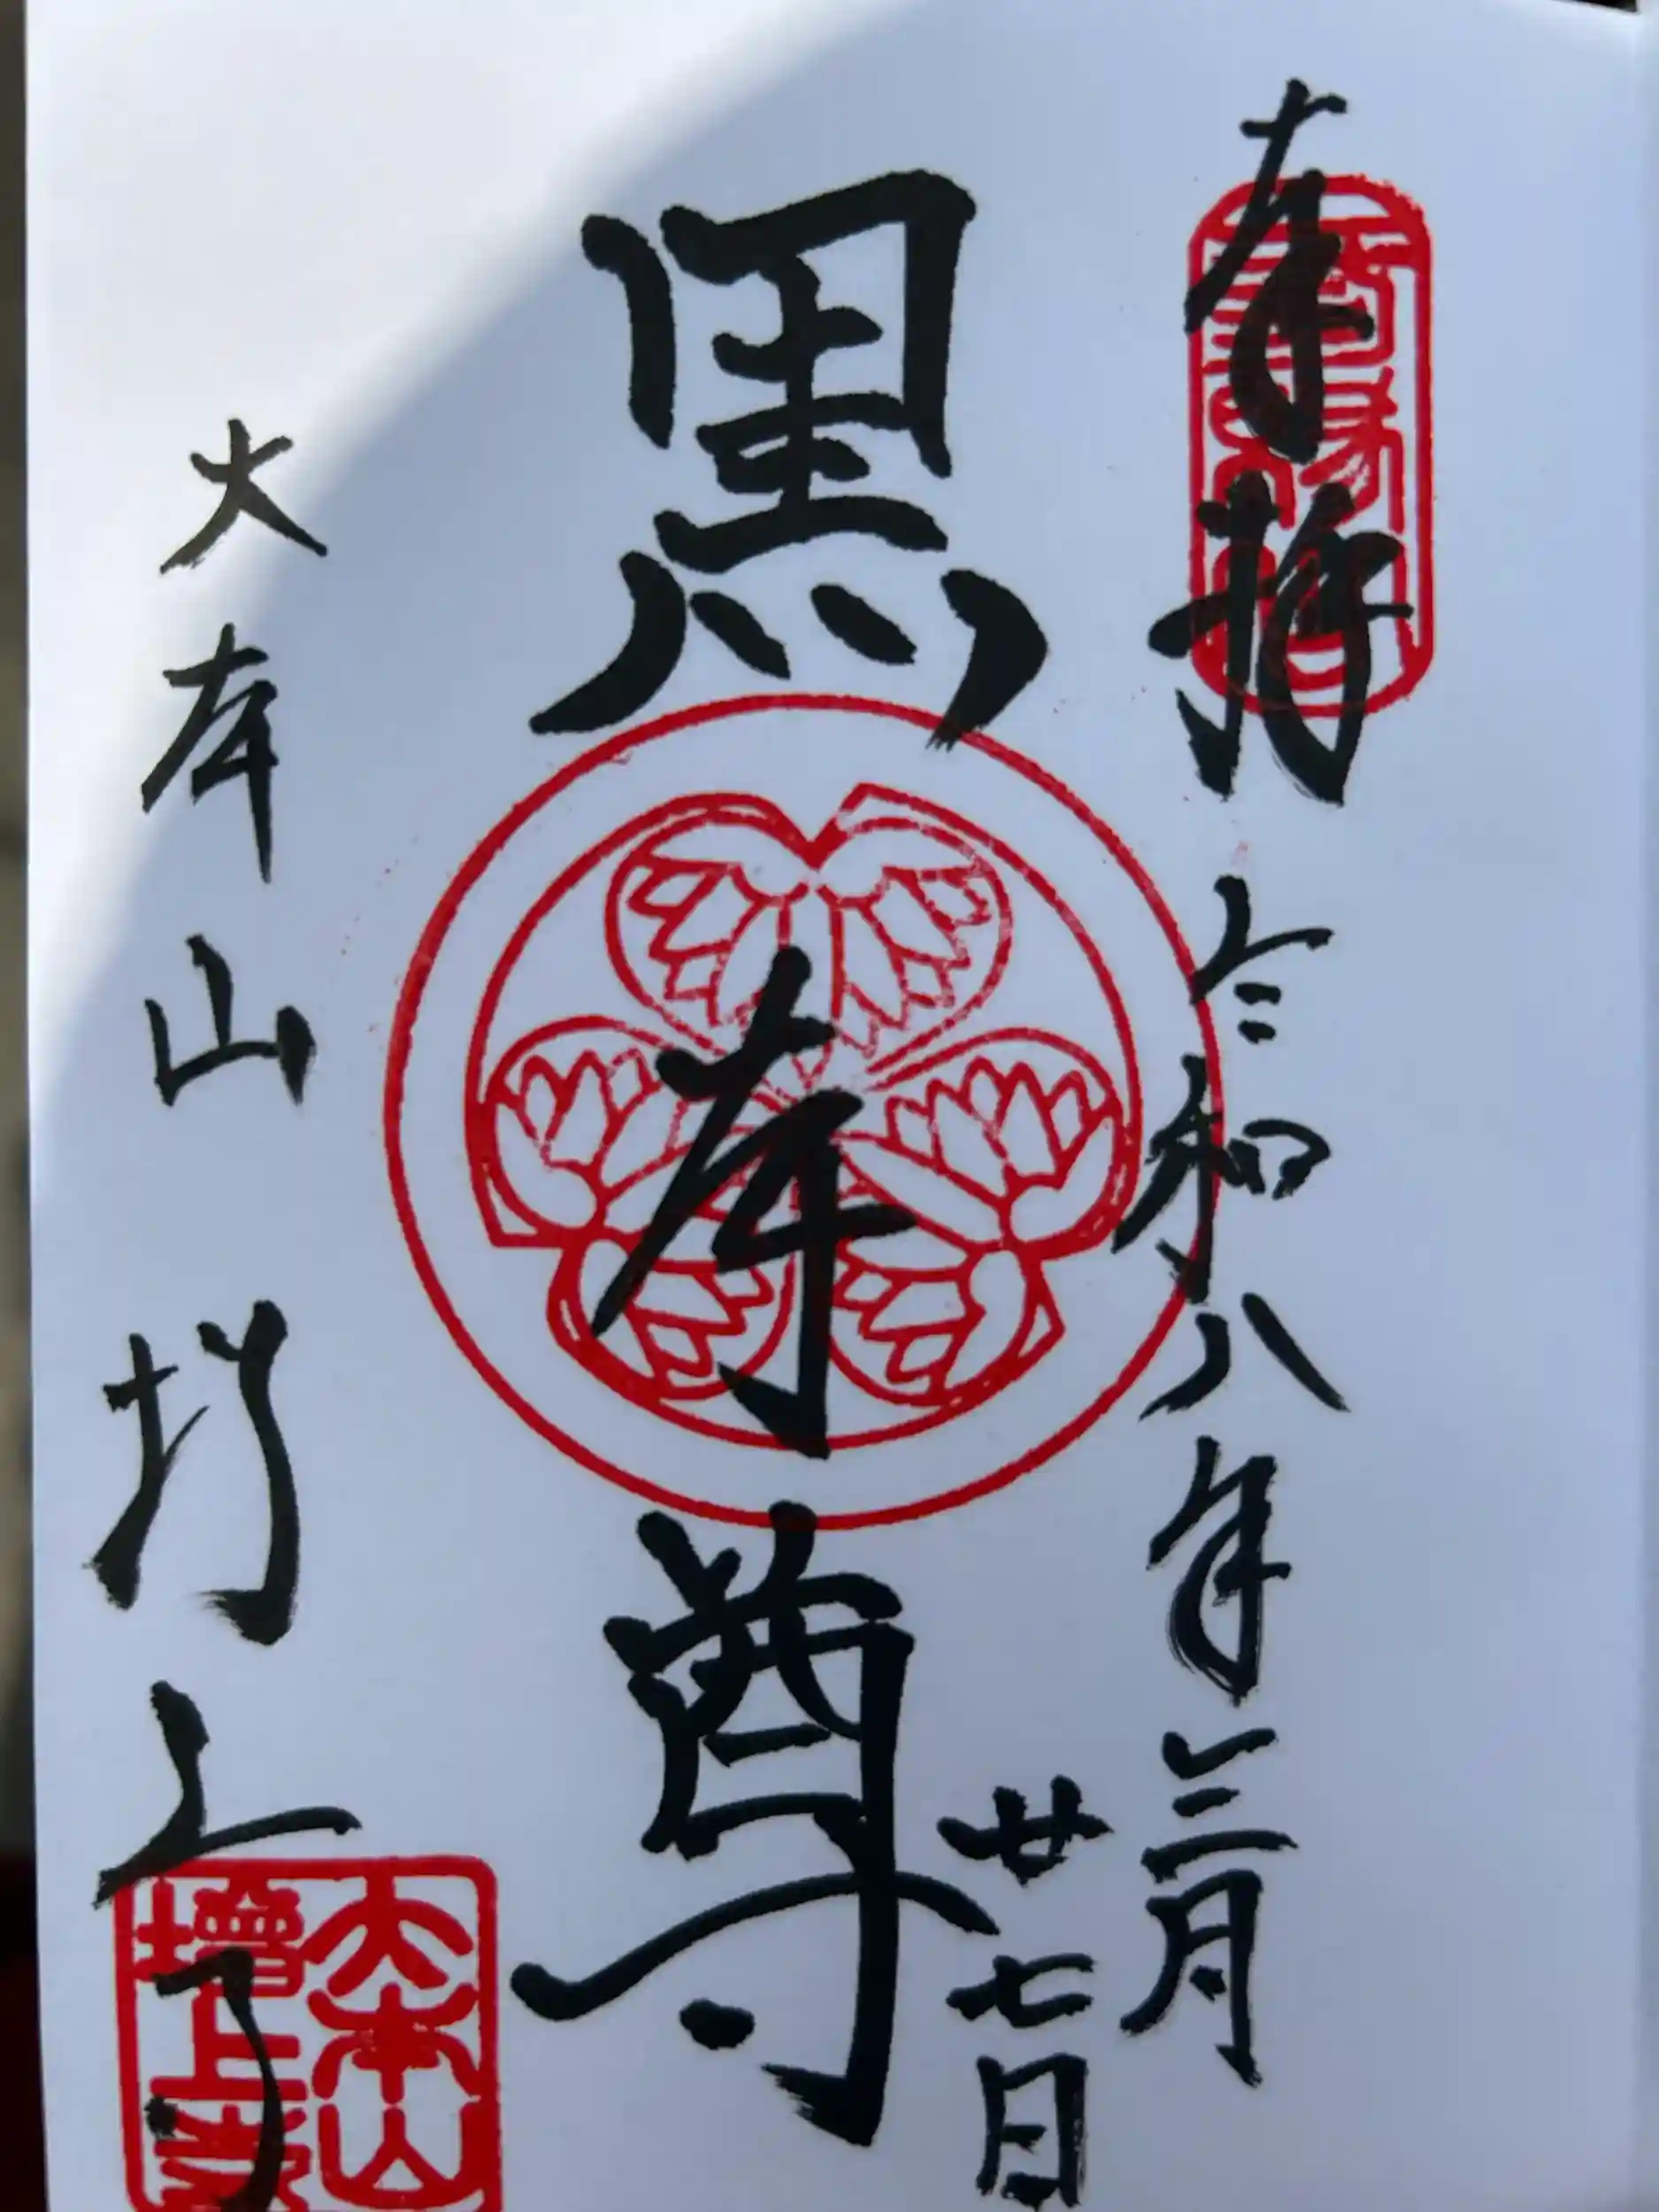 奉拝
令和八年三月
廿七日
黒本尊
大本山増上寺
大本山
増上寺